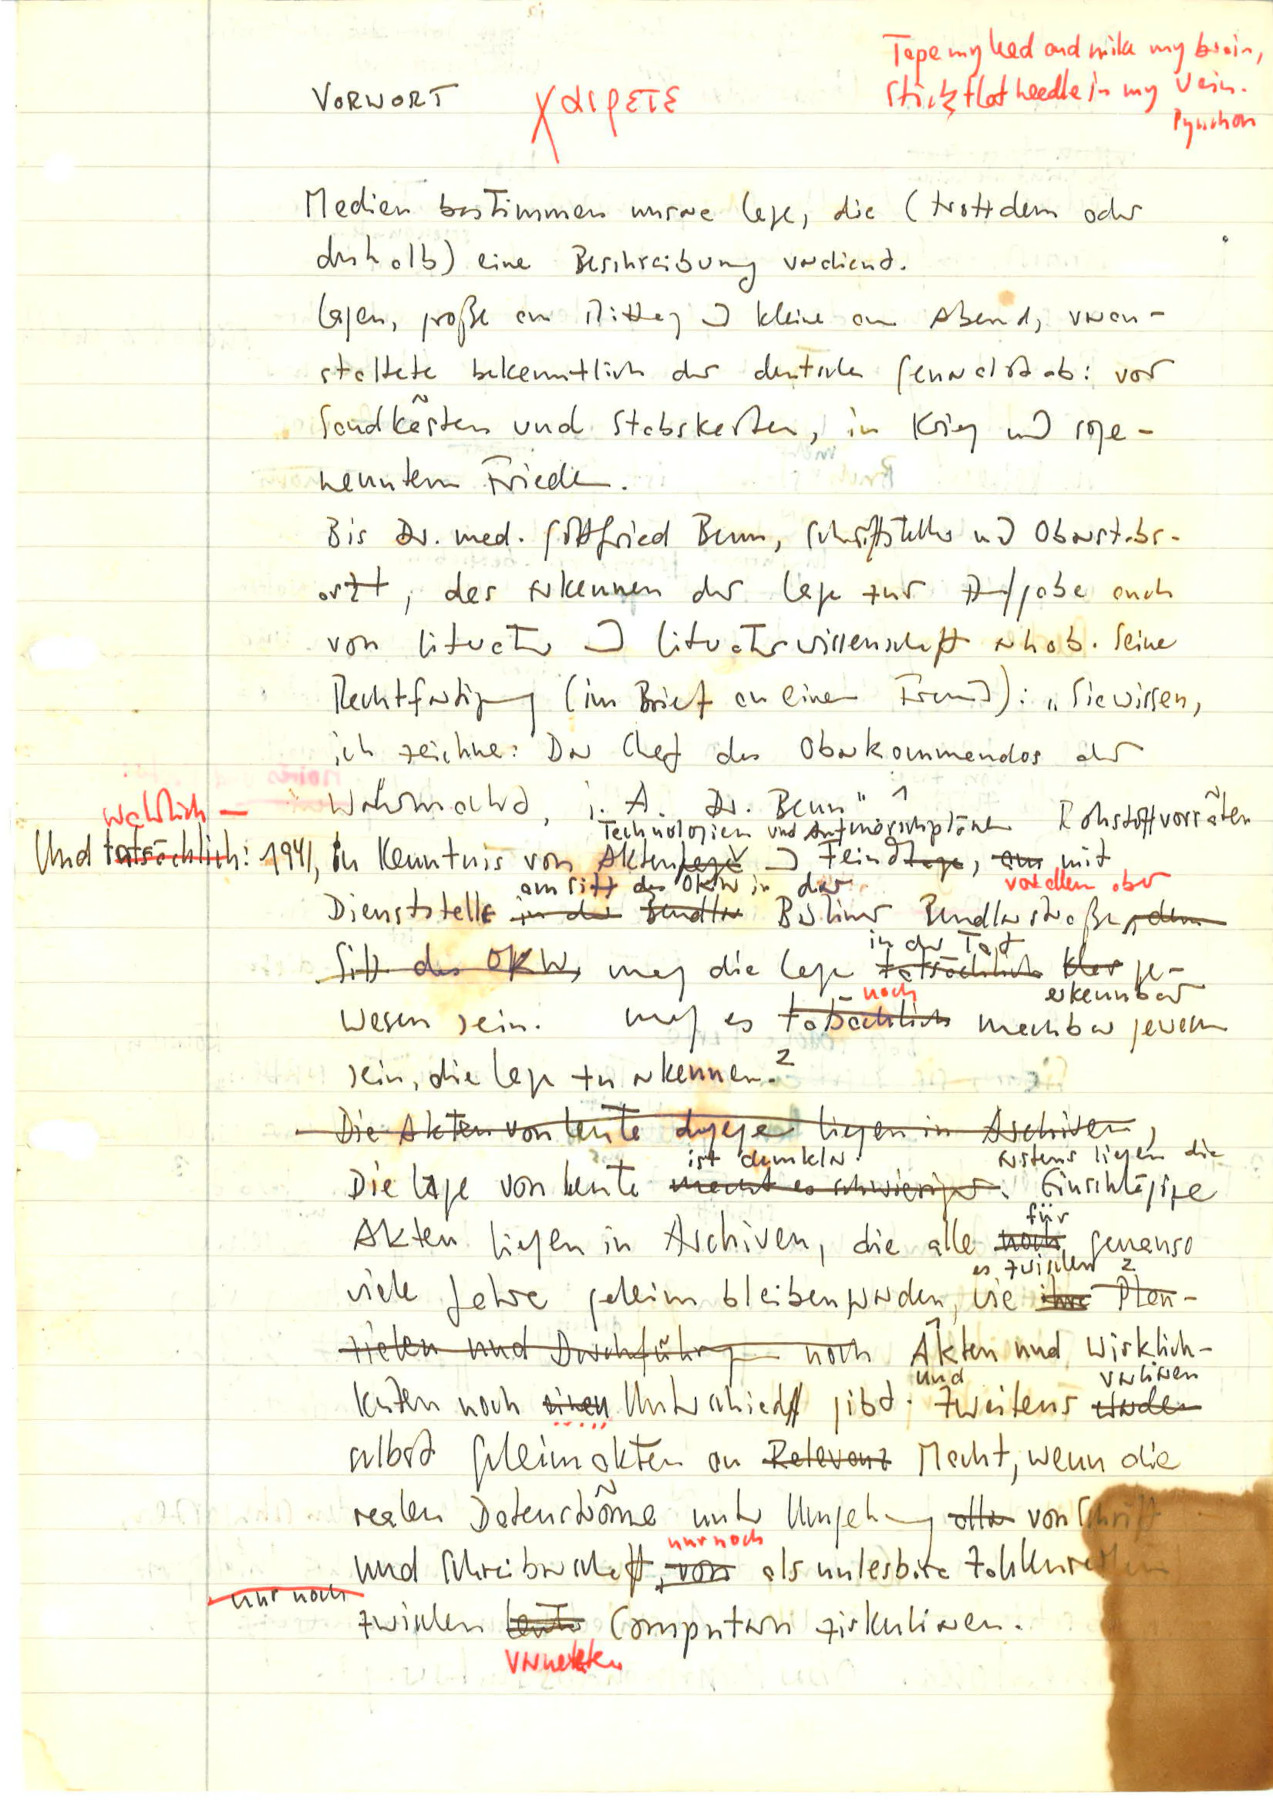 Tape my head and mike my brain,
Stick that needle in my vein.
Pynchon
VORWORT χαιρετε
Medien bestimmen unsere Lage, die (trotzdem oder
deshalb) eine Beschreibung verdient.
Lagen, große am Mittag und kleine am Abend, veran-
staltete bekanntlich der deutsche Generalstab: vor
Sandkästen und Stabskarten, in Krieg und soge-
nanntem Frieden.
Bis Dr. med. Gottfried Benn, Schriftsteller und Oberstabs-
arzt, das Erkennen der Lage zur Aufgabe auch
von Literatur und Literaturwissenschaft erhob. Seine
Rechtfertigung (im Brief an einen Freund): „Sie wissen,
ich zeichne: Der Chef des Oberkommandos der
Wehrmacht, i. A. Dr. Benn“ 1
wahrlich —
Technologien und Aufmarschplänen Rohstoffvorräten
Und tatsächlich: 1941, in Kenntnis von Aktenlage und Feindlage, aus mit
am Sitz des OKW in der vor allem aber
Dienststelle in der Bendler Berliner Bendlerstraße, dem
in der Tat
Sitz des OKW, mag die Lage tatsächlich klar ge-
noch erkennbar
wesen sein. mag es tatsächlich machbar gewesen
sein, die Lage zu erkennen.2
Die Akten von heute dagegen liegen in Archiven,
ist dunkler. erstens liegen die
Die Lage von heute macht es schwieriger. Einschlägige
für
Akten liegen in Archiven, die alle noch genauso
es zwischen 2
viele Jahre geheim bleiben werden, wie ihre Plan-
noch Akten und Wirklich-
und verlieren
keiten noch einen Unterschied gibt. Zweitens
selbst Geheimakten an Relevanz Macht, wenn die
realen Datenströme unter Umgehung aller von Schrift
nur noch
und Schreiberschaft, von als unlesbare Zahlenreihen
nur noch
zwischen Computern zirkulieren.
vernetzten